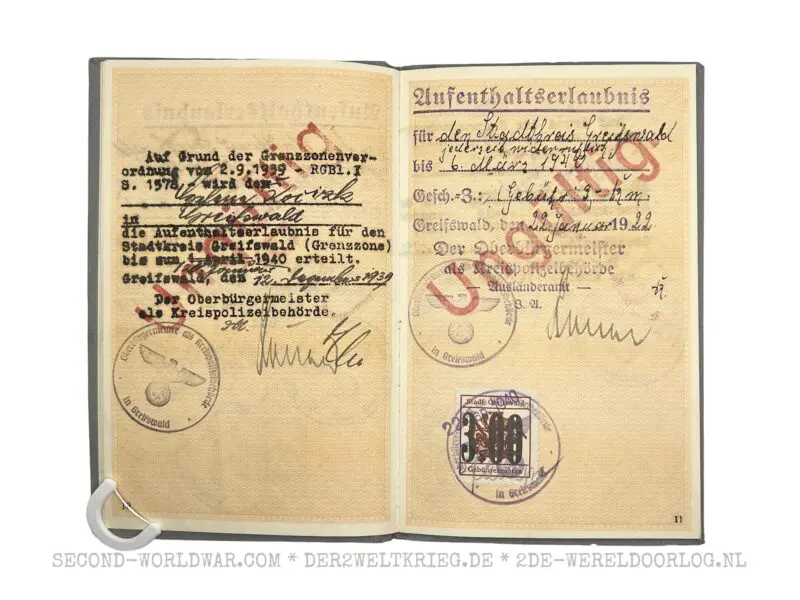 Auf Grund der Grenzzonenver-
ordnung vom 2.9.1939 - RGBl.I
S. 1578, wird dem
in Greifswald
die Aufenthaltserlaubnis für den
Stadtkreis Greifswald (Grenzzone)
bis zum 1. April 1940 erteilt.
Greifswald, den 12. Dezember 1939
Der Oberbürgermeister
als Kreispolizeibehörde.
Ungültig
in Greifswald
10
Aufenthaltserlaubnis
für den Stadtkreis Greifswald
jederzeit widerruflich
bis 6. März 19
Gesch.-Z.: Gebühr 3.- Rm.
Greifswald, den 22. Januar 1922
Der Oberbürgermeister
als Kreispolizeibehörde
— Ausländeramt —
Ungültig
in Greifswald
Stadt Greifswald
3.00
Gebührenmarke
in Greifswald
11
SECOND-WORLDWAR.COM * DER2WELTKRIEG.DE * 2DE-WERELDOORLOG.NL